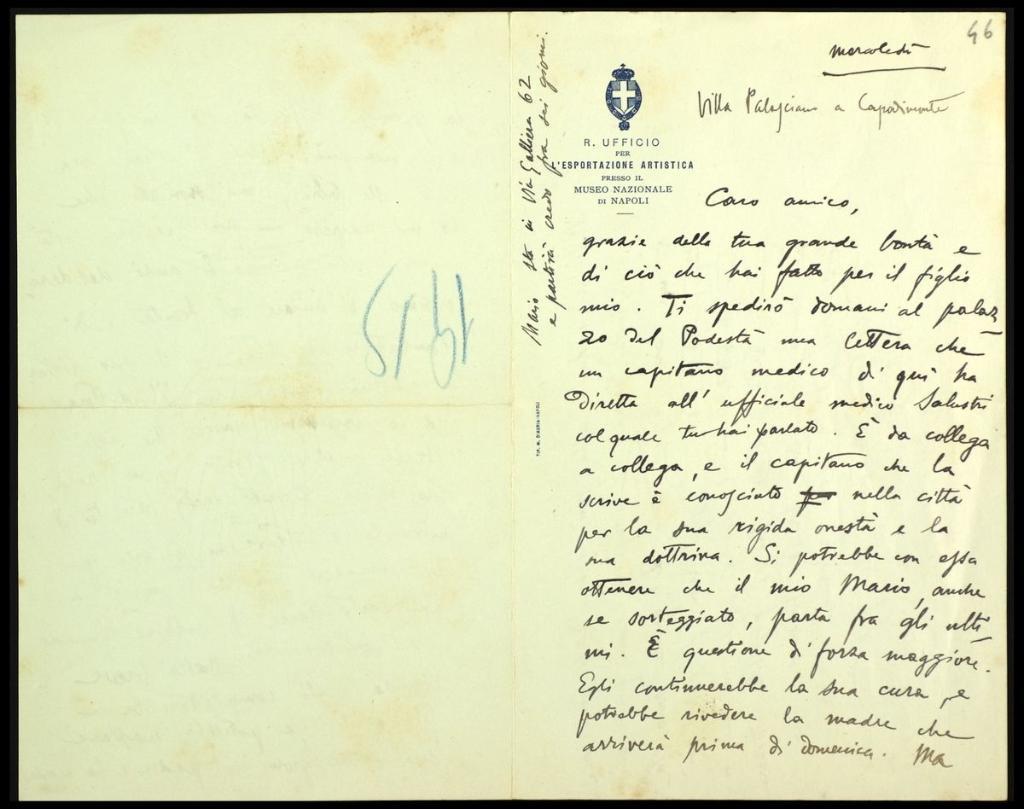 46
mercoledì
Villa Palasciano a Capodimonte
R. UFFICIO
PER
L'ESPORTAZIONE ARTISTICA
PRESSO IL
MUSEO NAZIONALE
DI NAPOLI
Caro amico,
grazie della tua grande bontà e
di ciò che hai fatto per il figlio
mio. Ti spedirò domani al palaz
zo del Podestà una lettera che
un capitano medico di qui ha
diretta all'ufficiale medico Salustri
col quale tu hai parlato. È da collega
a collega, e il capitano che la
scrive è conosciuto nella città
per la sua rigida onestà e la
sua dottrina. Si potrebbe con essa
ottenere che il mio Mario, anche
se sorteggiato, parta fra gli ulti
mi. È questione di forza maggiore.
Egli continuerebbe la sua cura, e
potrebbe rivedere la madre che
arriverà prima di domenica. Ma
Mario sta in Via Galliera 62
e partirà credo fra sei giorni.
1915